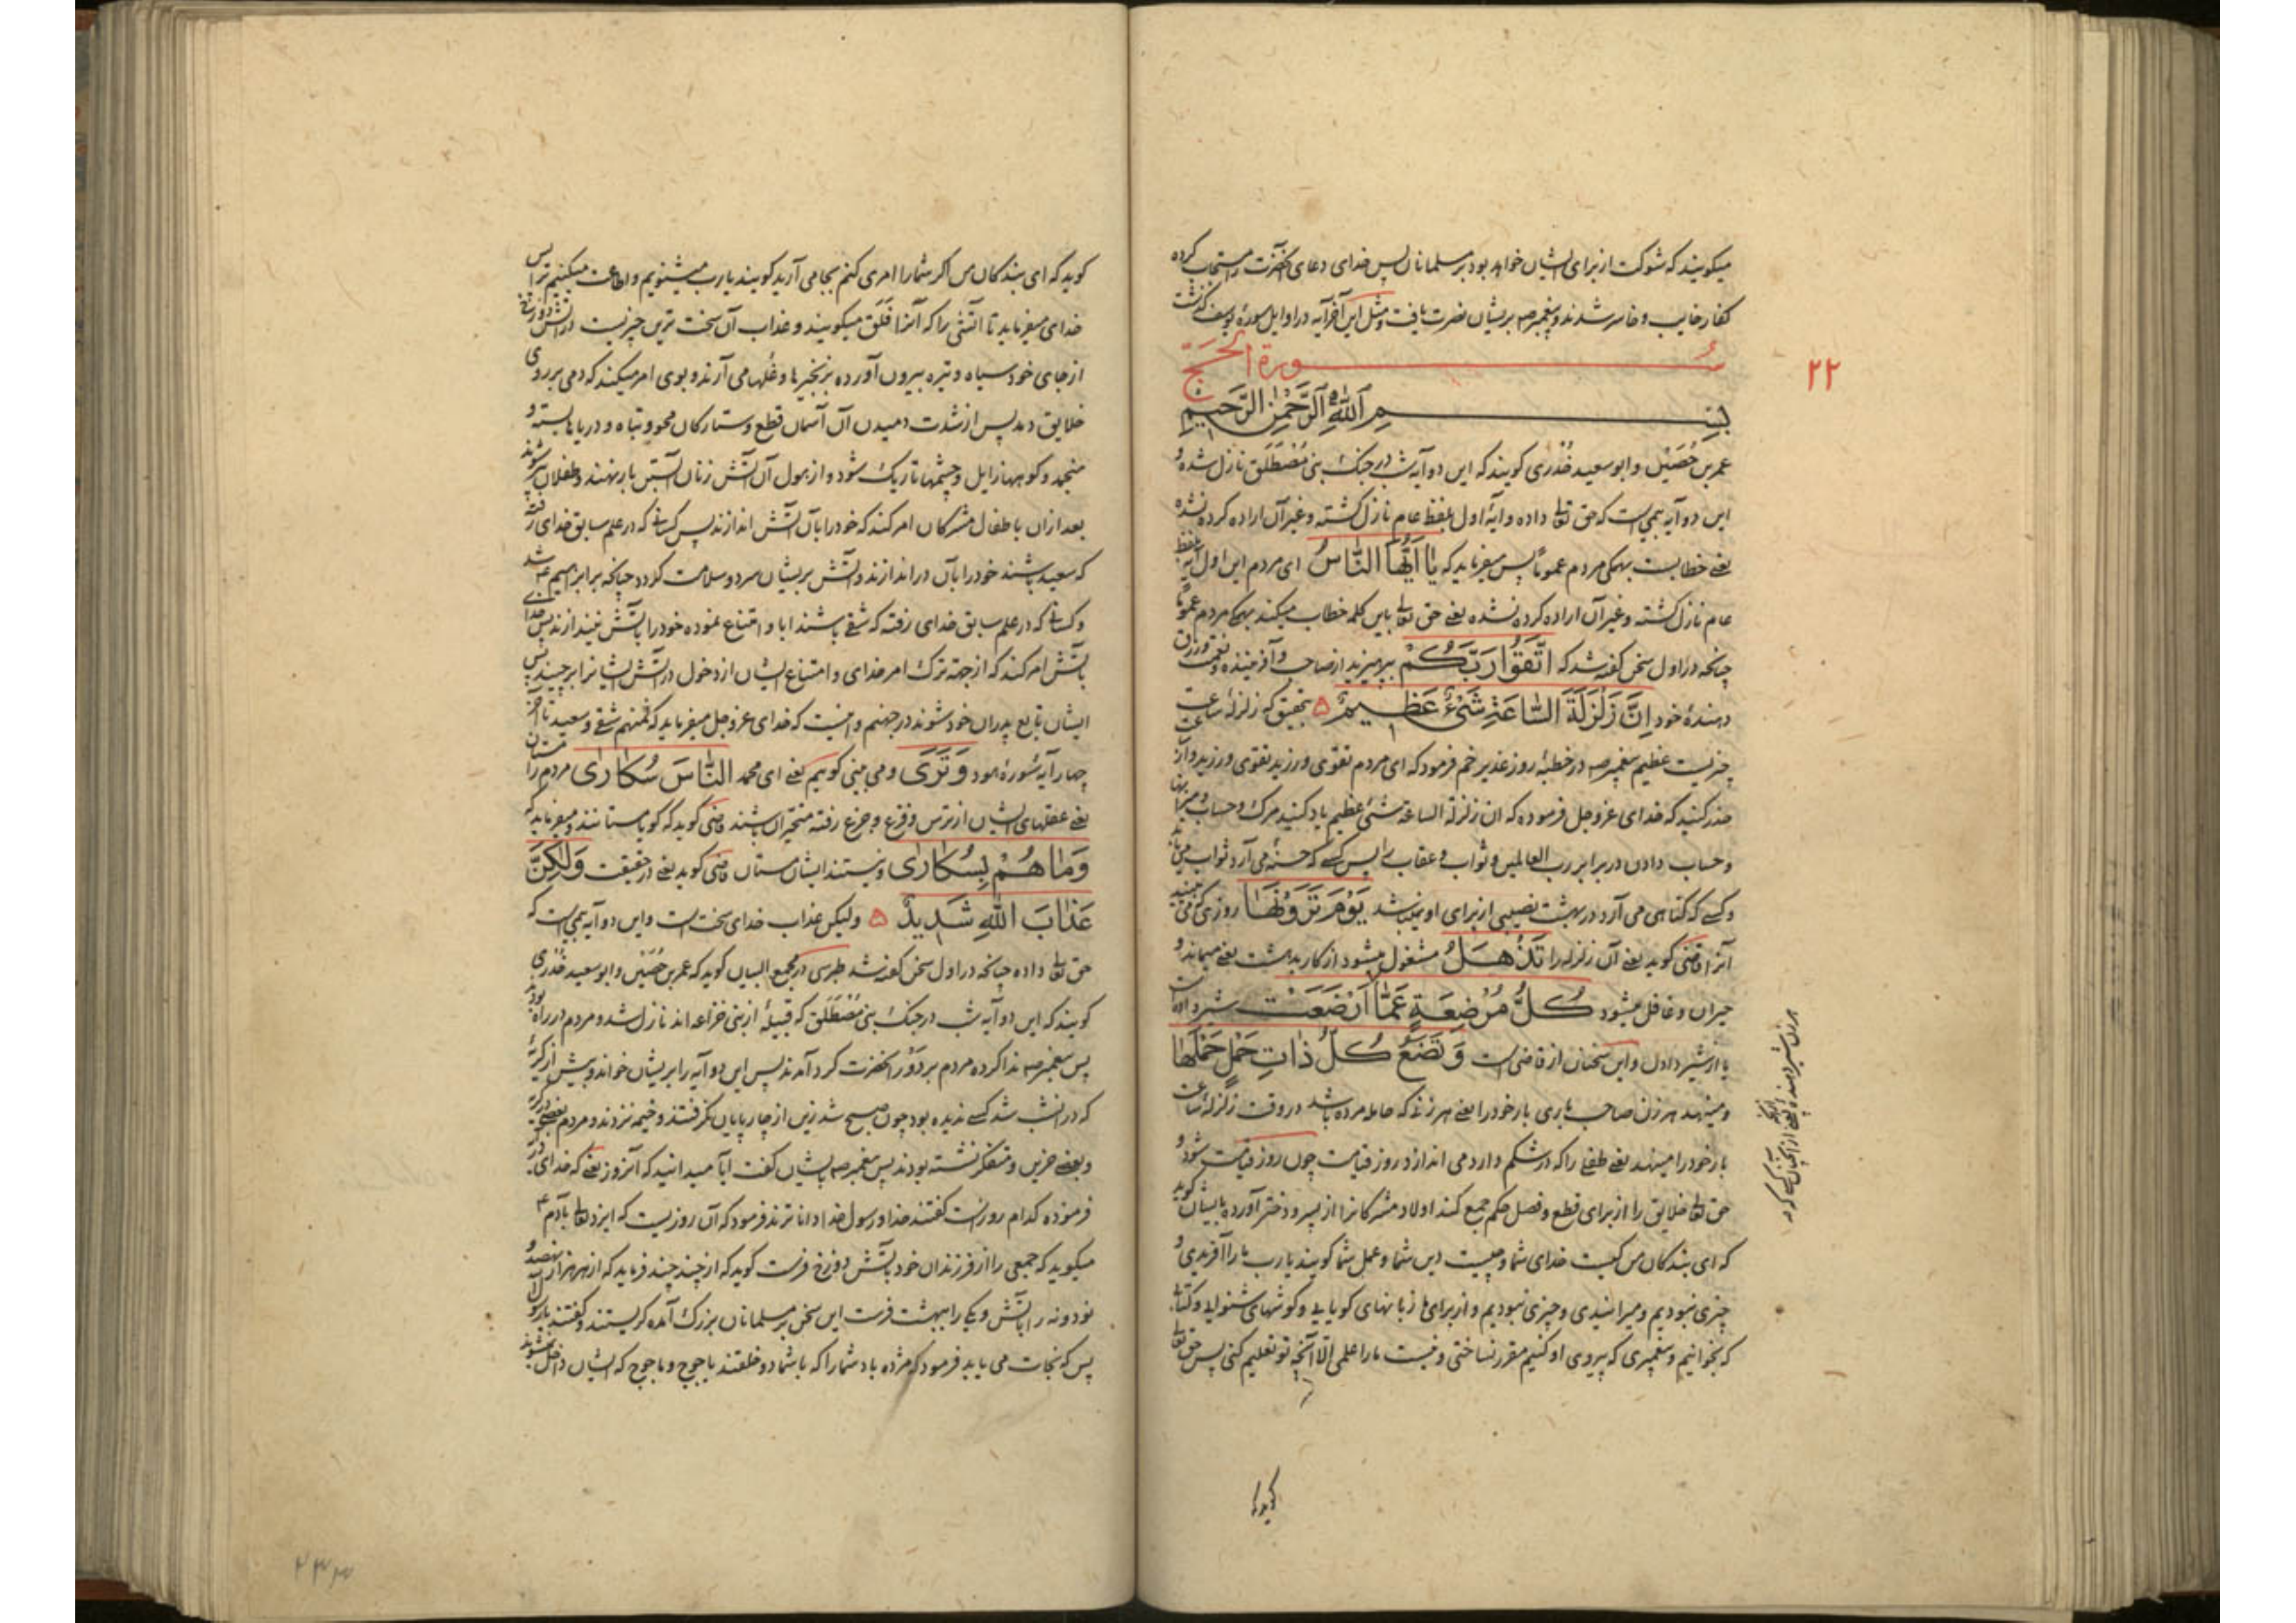 میکویند که شوکت از برای ایشان خواهد بود بر مسلمانان پس خدای دعای آنحضرت را مستجاب کرده
کفار خایب و خاسر شدند و پیغمبر صه بریشان نصرت یافت و مثل این آخر آیه در اوایل سورهٔ یوسف گذشت
سورة الحج
۲۲
بسم الله الرحمن الرحیم
عمر بن حُصَین و ابو سعید خُدری کویند که این دو آیه شب در جنک بنی مُصْطَلَق نازل شده و
این دو آیه بیمی است که حق تعالی داده و آیهٔ اول بلفظ عام نازل کشته و غیر آن اراده کرده نشده
یعنی خطابست بهمکی مردم عموماً پس میفرماید که یٰا اَیُّهَا النّٰاسُ ای مردم این اول آیه بلفظ
عام نازل کشته و غیر آن اراده کرده نشده یعنی حق تعالی باین کلمه خطاب میکند بهمکی مردم عموماً
چنانچه در اول سخن کفته شد که اتَّقُوا رَبَّکُمْ بپرهیزید از صاحب و آفریننده و نعمت و رزق
دهندهٔ خود اِنَّ زَلْزَلَةَ السّٰاعَةِ شَیْءٌ عَظِیمٌ ۵ بتحقیق که زلزلهٔ ساعت
چیزیست عظیم پیغمبر صه در خطبهٔ روز غدیر خم فرمود که ای مردم تقوی ورزید تقوی ورزید و از
حذر کنید که خدای عز و جل فرموده که ان زلزلة الساعة شئ عظیم یاد کنید مرک و حساب و میزانها
و حساب دادن در برابر رب العالمین و ثواب و عقاب را پس کسی که حسنه می آرد ثواب می یابد
و کسی که کناهی می آرد در بهشت نصیبی از برای او نمیباشد یَوْمَ تَرَوْنَهٰا روزی که می بینید
آنرا قاضی کوید یعنی آن زلزله را تَذْهَلُ مشغول میشود از کار بدهشت یعنی میماند و
حیران و غافل میشود کُلُّ مُرْضِعَةٍ عَمّٰا اَرْضَعَتْ شیر داده است
یا از شیر دادن و این سخنان از قاضی است وَ تَضَعُ کُلُّ ذٰاتِ حَمْلٍ حَمْلَهٰا
و مینهد هر زن صاحب باری بار خود را یعنی هر زنی که حامله مرده باشد در وقت زلزلهٔ ساعت
بار خود را مینهد یعنی طفلی را که در شکم دارد می اندازد و روز قیامت چون روز قیامت شود و
حق تعالی خلایق را از برای قطع و فصل حکم جمع کند اولاد مشرکانرا از پسر و دختر آورده بایشان کوید
که ای بندکان من کیست خدای شما و چیست دین شما و عمل شما کویند یا رب ما را آفریدی و
چیزی نبودیم و میرانیدی و چیزی نبودیم و از برای ما زبانهای کویا یی و کوشهای شنوا یی و کتابی
که بخوانیم و پیغمبری که پیروی او کنیم مقرر نساختی و نیست ما را علمی الا آنچه تو تعلیم کنی پس حق تعالی
کوید که ای بندکان من اکر شما را امری کنم بجا می آرید کویند یا رب میشنویم و اطاعت میکنیم ترا پس
خدای میفرماید تا آتشی را که آنرا فَلَق میکویند و عذاب آن سخت ترین چیزیست در آتش دوزخ
از جای خود سیاه و تیره بیرون آورده بزنجیرها و غلها می آرند و بوی امر میکند که دمی بر روی
خلایق دمد پس از شدت دمیدن آن آسمان قطع و ستارکان محو و تباه و دریاها بسته و
منجمد و کوهها زایل و چشمها تاریک شود و از هول آن آتش زنان آبستن بار بنهند و طفلان پیر شوند
بعد ازان باطفال مشرکان امر کند که خود را بآن آتش اندازند پس کسانی که در علم سابق خدای رفته
که سعید باشند خود را بآن در اندازند و آتش بریشان سرد و سلامت کردد چنانکه بر ابراهیم ع شد
و کسانی که در علم سابق خدای رفته که شقی باشند ابا و امتناع نموده خود را بآتش نیندازند پس خدای
بآتش امر کند که از جهت ترک امر خدای و امتناع ایشان از دخول در آتش ایشانرا بر چیند پس
ایشان تابع پدران خود شوند در جهنم و اینست که خدای عز و جل میفرماید که فمنهم شقی و سعید تا آخر
چهار آیه سورهٔ هود وَ تَرَی و می بینی کوییم یعنی ای محمد النّٰاسَ سُکٰارٰی مردم را مستان
یعنی عقلهای ایشان از ترس و فزع و جزع رفته متحیران باشند قاضی کوید که کویا مستانند و میفرماید که
وَمٰا هُمْ بِسُکٰارٰی و نیستند ایشان مستان قاضی کوید یعنی در حقیقت وَلٰکِنَّ
عَذٰابَ اللهِ شَدِیدٌ ۵ ولیکن عذاب خدای سخت است و این دو آیه بیمی است که
حق تعالی داده چنانچه در اول سخن کفته شد طبرسی در مجمع البیان کوید که عمر بن حُصَین و ابو سعید خُدری
کویند که این دو آیه شب در جنک بنی مُصْطَلَق که قبیلهٔ از بنی خزاعه اند نازل شد و مردم در راه بودند
پس پیغمبر صه ندا کرده مردم بر دَوْر آنحضرت کرد آمدند پس این دو آیه را بریشان خواند و بیش از کریهٔ
که در انشب شد کسی ندیده بود چون صبح شد زین از چارپایان نکرفتند و خیمه نزدند و مردم بعضی در کریه
و بعضی حزین و متفکر نشسته بودند پس پیغمبر صه بایشان کفت آیا میدانید که آنروز یعنی که خدای
فرموده کدام روز است کفتند خدا و رسول خدا دانا ترند فرمود که آن روزیست که ایزد تعالی بآدم ع
میکوید که جمعی را از فرزندان خود بآتش دوزخ فرست کوید که از چند چند فرماید که از هر هزار نهصد و
نود و نه را بآتش و یکی را ببهشت فرست این سخن بر مسلمانان بزرک آمده کریستند و کفتند یا رسول الله
پس که نجات می یابد فرمود که مژده باد شما را که با شما دو خلقند یاجوج و ماجوج که ایشان داخل نشوند